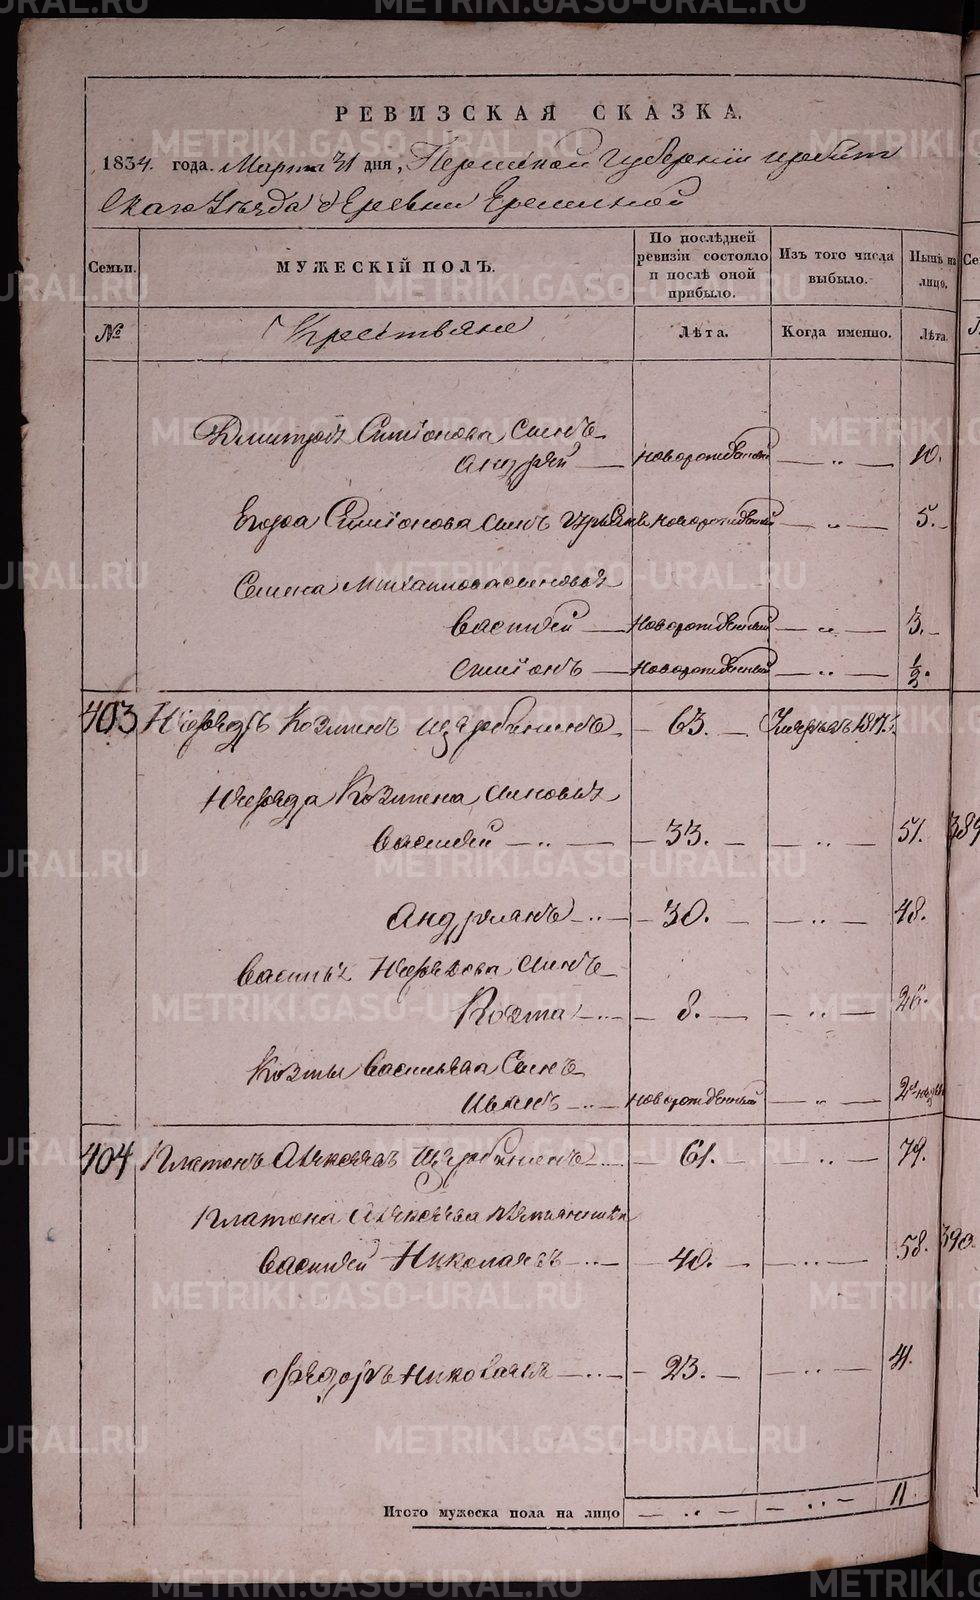 METRIKI.GASO-URAL.RU
РЕВИЗСКАЯ СКАЗКА.
1834. года. Марта 31 дня, Пермской губернии ирбит
скаго Уезда деревни Ереминой
Семьи.
МУЖЕСКІЙ ПОЛЪ.
По послѣдней ревизіи состояло и послѣ оной прибыло.
Изъ того числа выбыло.
Нынѣ на лицо.
№
Крестьяне
Лѣта.
Когда именно.
Лѣта.
Симіонова сынъ
андрей — новорожденный — „ — 10.
Егора Симіонова сынъ новорожденный — „ — 5.
Семена Михаиловасыновья
Василей — новорожденный — „ — 3.
симіонъ — новорожденный — „ — ½.
403 Козминъ — 63. — 1817.
Козмина сыновья
Василей — „ — 33. — „ — 51. 389
андреанъ — 30. — „ — 48.
сынъ
Козма — 8. — „ — 26.
Козмы Васильева Сынъ
Иванъ — новорожденный — „ —
404 Платонъ Алексеевъ — 61. — „ — 79.
Платона Алексеева племянники
Василей Николаевъ — 40. — „ — 58. 390.
Федоръ Николаевъ — 23. — „ — 41.
Итого мужеска пола на лицо — „ — — „ — 11